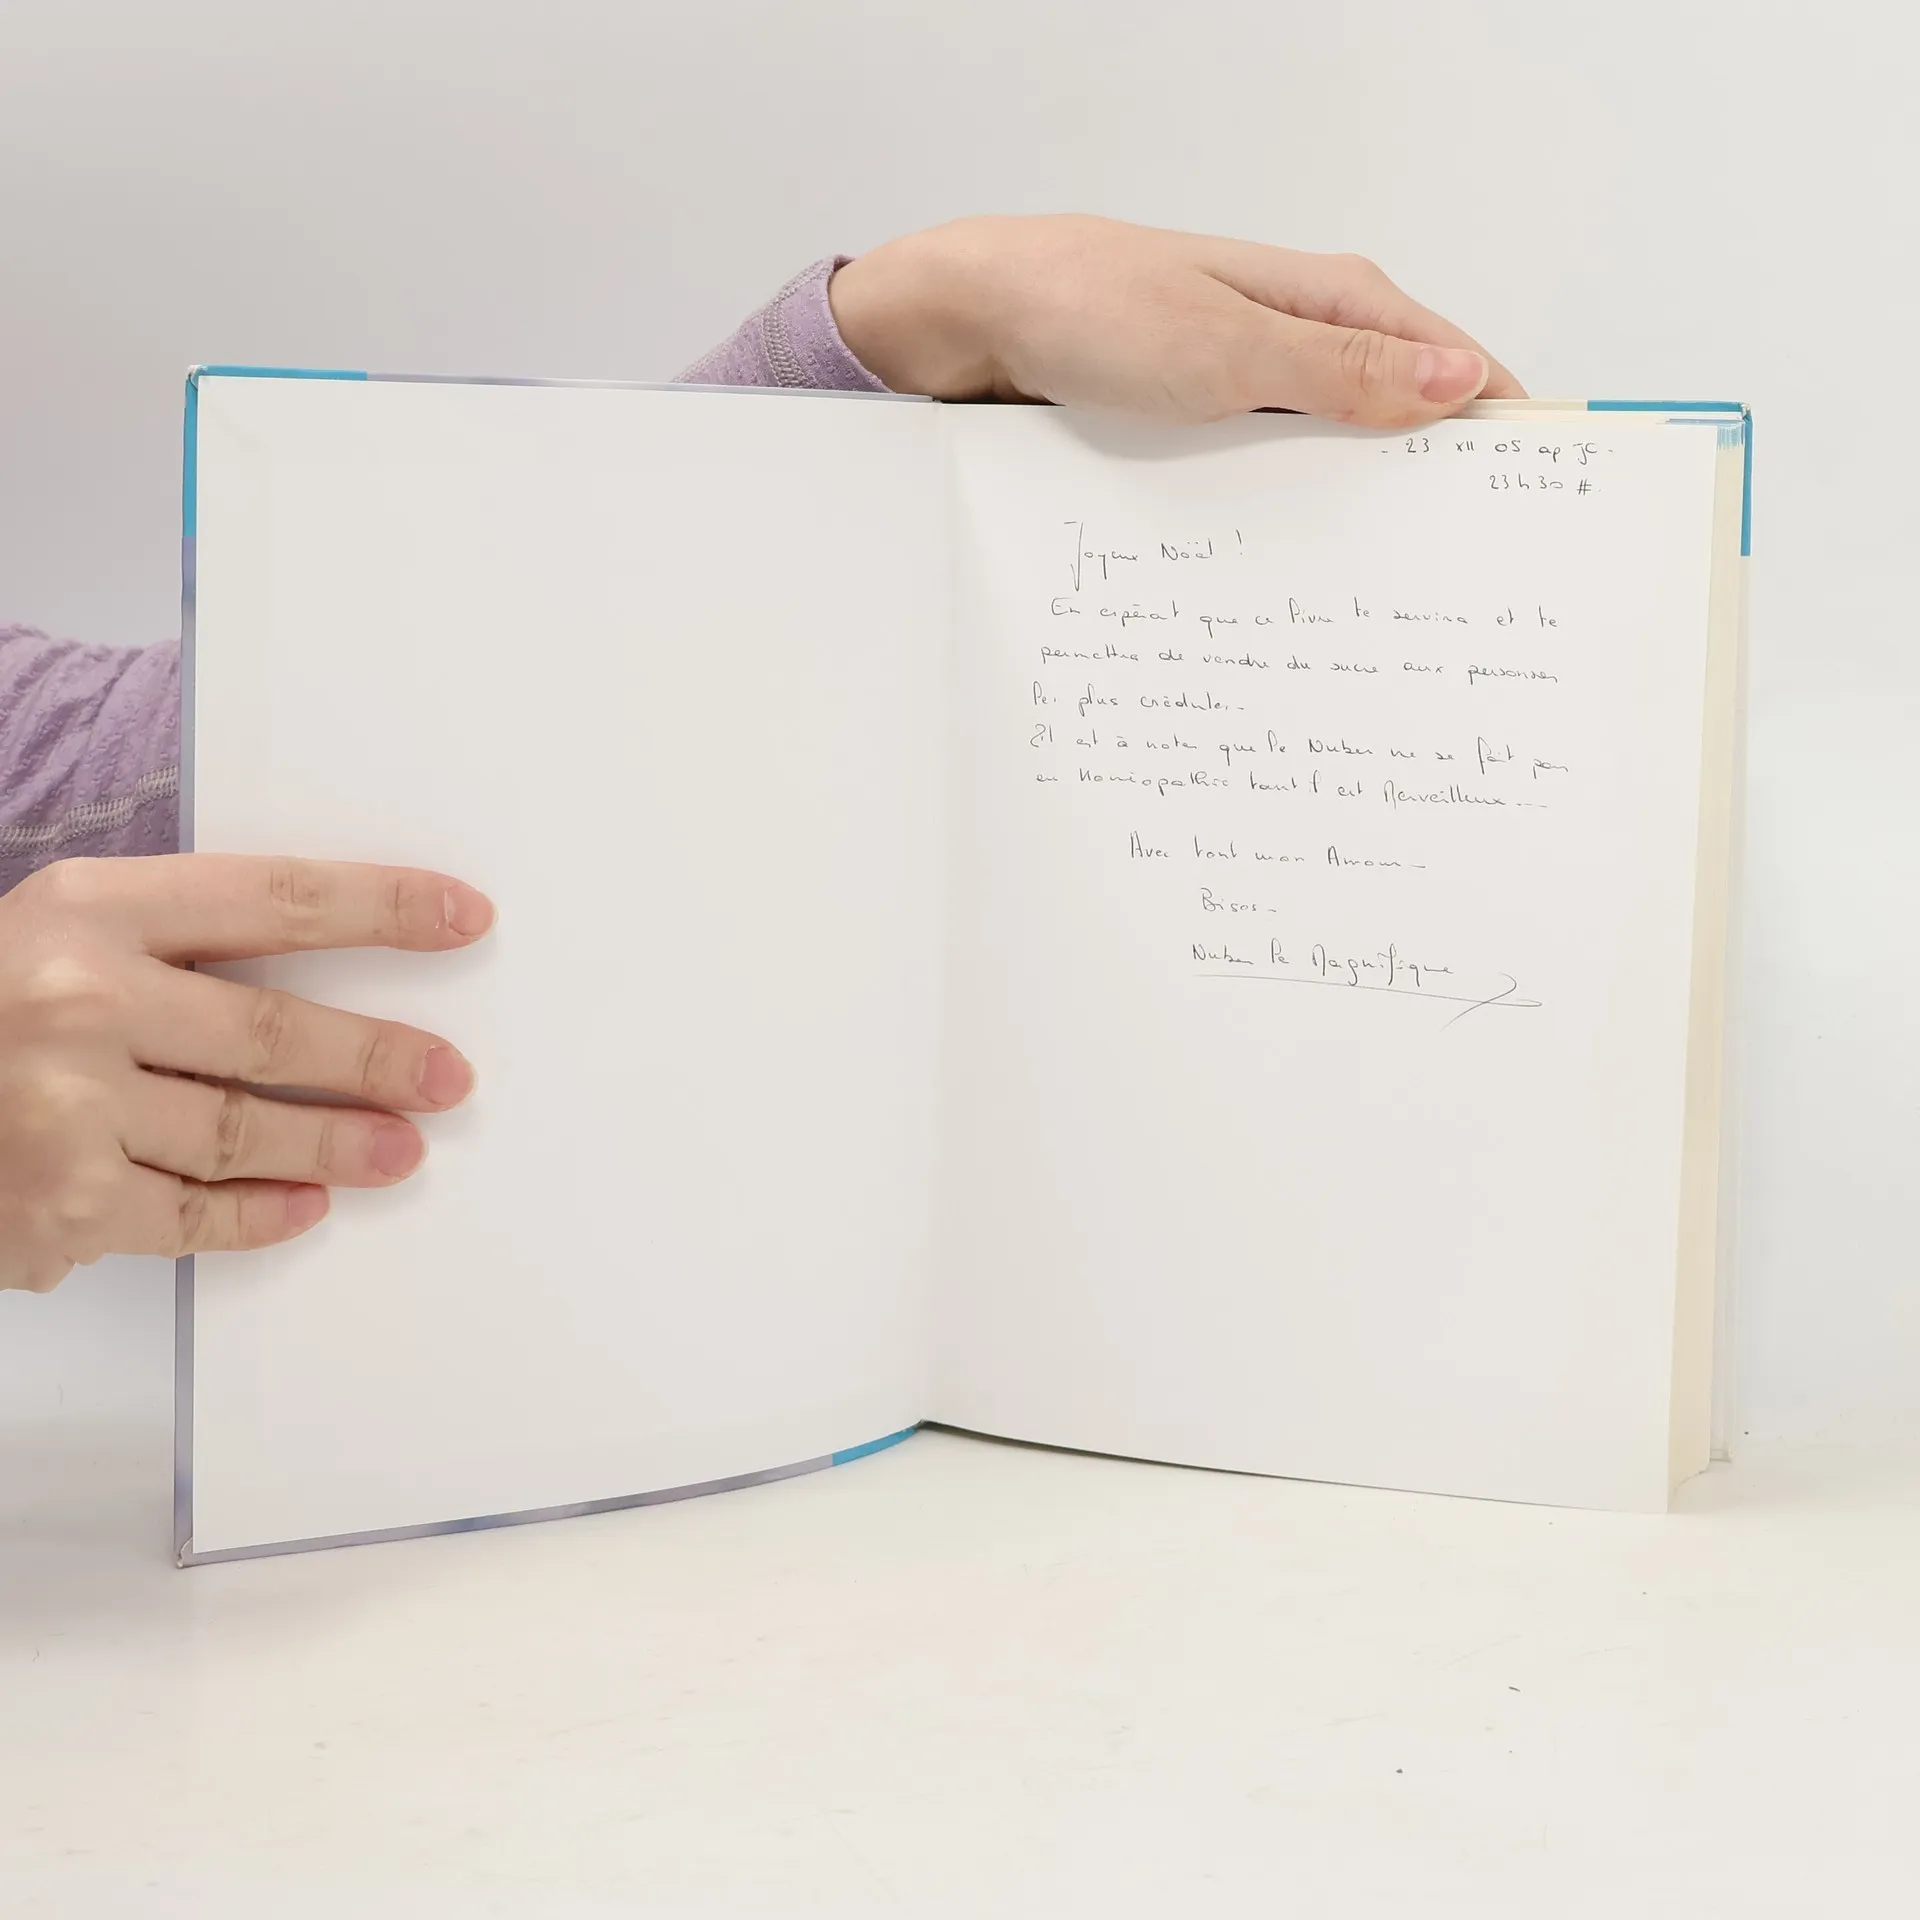 - 23 XII 05 ap JC -
23h30 #.
Joyeux Noël !
En espérant que ce livre te servira et te
permettra de vendre du sucre aux personnes
les plus crédules -
Il est à noter que le Nuben ne se fait pas
en Homéopathie tant il est Merveilleux ---
Avec tout mon Amour -
Bisos -
Nuben le Magnifique